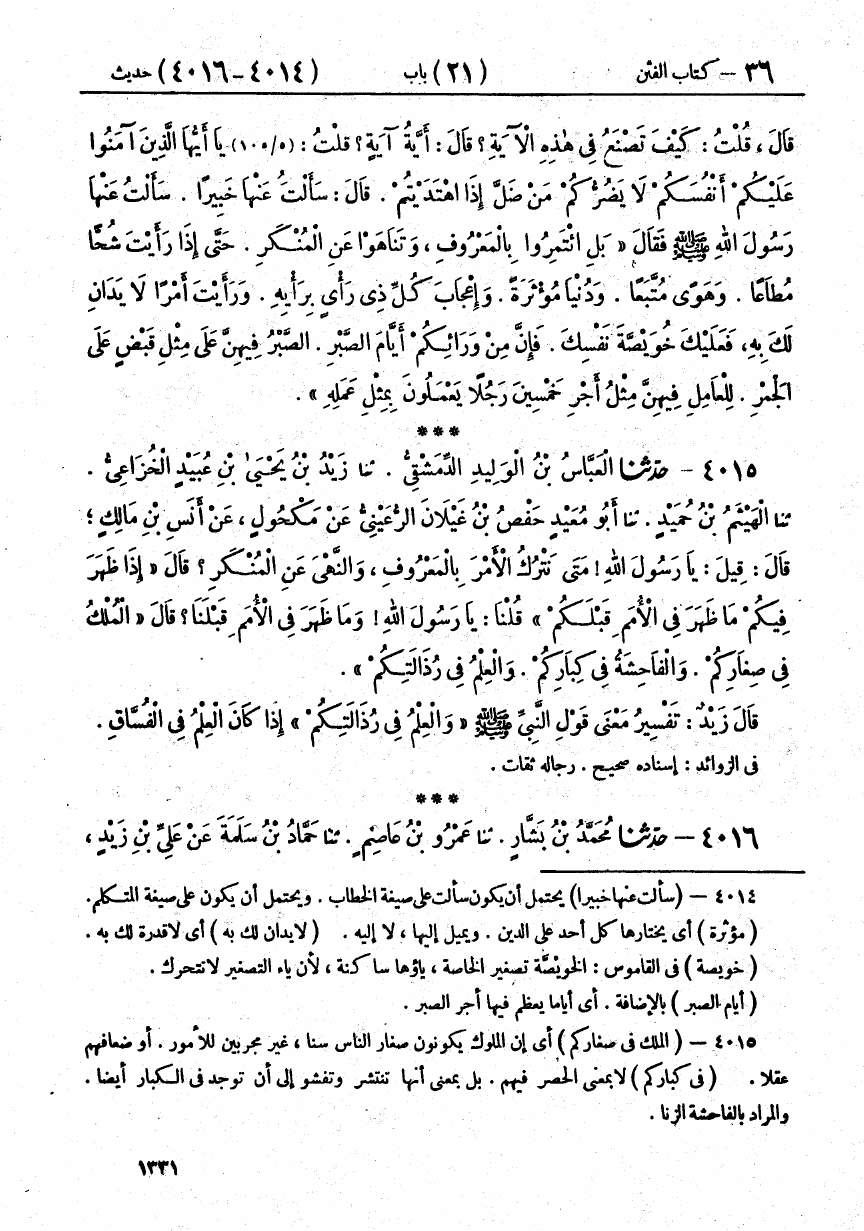 ٣٦ – كتاب الفتن (٢١) باب (٤٠١٤ – ٤٠١٦) حديث
قَالَ ، قُلْتُ : كَيْفَ تَصْنَعُ فِي هٰذِهِ الْآيَةِ ؟ قَالَ : أَيَّةُ آيَةٍ ؟ قلْتُ : (١٠٥/٥) يَا أَيُّهَا الَّذِينَ آمَنُوا
عَلَيْكُمْ أَنْفُسَكُمْ لَا يَضُرُّكُمْ مَنْ ضَلَّ إِذَا اهْتَدَيْتُمْ . قَالَ : سَأَلْتَ عَنْهَا خَبِيرًا . سَأَلْتُ عَنْهَا
رَسُولَ اللهِ ﷺ فَقَالَ « بَلِ ائْتَمِرُوا بِالْمَعْرُوفِ ، وَتَنَاهَوْا عَنِ الْمُنْكَرِ . حَتَّى إِذَا رَأَيْتَ شُحًّا
مُطَاعًا . وَهَوًى مُتَّبَعًا . وَدُنْيَا مُؤْثَرَةً . وَإِعْجَابَ كُلِّ ذِي رَأْيٍ بِرَأْيِهِ . وَرَأَيْتَ أَمْرًا لَا يَدَانِ
لَكَ بِهِ ، فَعَلَيْكَ خُوَيْصَّةَ نَفْسِكَ . فَإِنَّ مِنْ وَرَائِكُمْ أَيَّامَ الصَّبْرِ . الصَّبْرُ فِيهِنَّ عَلَى مِثْلِ قَبْضٍ عَلَى
الْجَمْرِ . لِلْعَامِلِ فِيهِنَّ مِثْلُ أَجْرِ خَمْسِينَ رَجُلًا يَعْمَلُونَ بِمِثْلِ عَمَلِهِ » .
***
٤٠١٥ – حدّثنا الْعَبَّاسُ بْنُ الْوَلِيدِ الدِّمَشْقِيُّ . ثنا زَيْدُ بْنُ يَحْيَىٰ بْنِ عُبَيْدٍ الْخُزَاعِيُّ .
ثنا الْهَيْثَمُ بْنُ حُمَيْدٍ . ثنا أَبُو مُعَيْدٍ حَفْصُ بْنُ غَيْلَانَ الرُّعَيْنِيُّ عَنْ مَكْحُولٍ ، عَنْ أَنَسِ بْنِ مَالِكٍ ؛
قَالَ : قِيلَ : يَا رَسُولَ اللهِ ! مَتَى نَتْرُكُ الْأَمْرَ بِالْمَعْرُوفِ ، وَالنَّهْيَ عَنِ الْمُنْكَرِ ؟ قَالَ « إِذَا ظَهَرَ
فِيكُمْ مَا ظَهَرَ فِي الْأُمَمِ قَبْلَكُمْ » قُلْنَا : يَا رَسُولَ اللهِ ! وَمَا ظَهَرَ فِي الْأُمَمِ قَبْلَنَا ؟ قَالَ « الْمُلْكُ
فِي صِغَارِكُمْ . وَالْفَاحِشَةُ فِي كِبَارِكُمْ . وَالْعِلْمُ فِي رُذَالَتِكُمْ » .
قَالَ زَيْدٌ : تَفْسِيرُ مَعْنَى قَوْلِ النَّبِيِّ ﷺ « وَالْعِلْمُ فِي رُذَالَتِكُمْ » إِذَا كَانَ الْعِلْمُ فِي الْفُسَّاقِ .
فى الزوائد : إسناده صحيح . رجاله ثقات .
***
٤٠١٦ – حدّثنا مُحَمَّدُ بْنُ بَشَّارٍ . ثنا عَمْرُو بْنُ عَاصِمٍ . ثنا حَمَّادُ بْنُ سَلَمَةَ عَنْ عَلِيِّ بْنِ زَيْدٍ ،
٤٠١٤ – (سألت عنها خبيرا) يحتمل أن يكون سألت على صيغة الخطاب . ويحتمل أن يكون على صيغة المتكلم .
(مؤثرة) أى يختارها كل أحد على الدين . ويميل إليها ، لا إليه . (لا يدان لك به) أى لا قدرة لك به .
(خويصة) فى القاموس : الخويصّة تصغير الخاصة ، ياؤها ساكنة ، لأن ياء التصغير لا تتحرك .
(أيام الصبر) بالإضافة . أى أياما يعظم فيها أجر الصبر .
٤٠١٥ – (الملك فى صغاركم) أى إن الملوك يكونون صغار الناس سنا ، غير مجربين للأمور . أو ضعافهم
عقلا . (فى كباركم) لا بمعنى الحصر فيهم . بل بمعنى أنها تنتشر وتفشو إلى أن توجد فى الكبار أيضا .
والمراد بالفاحشة الزنا .
١٣٣١